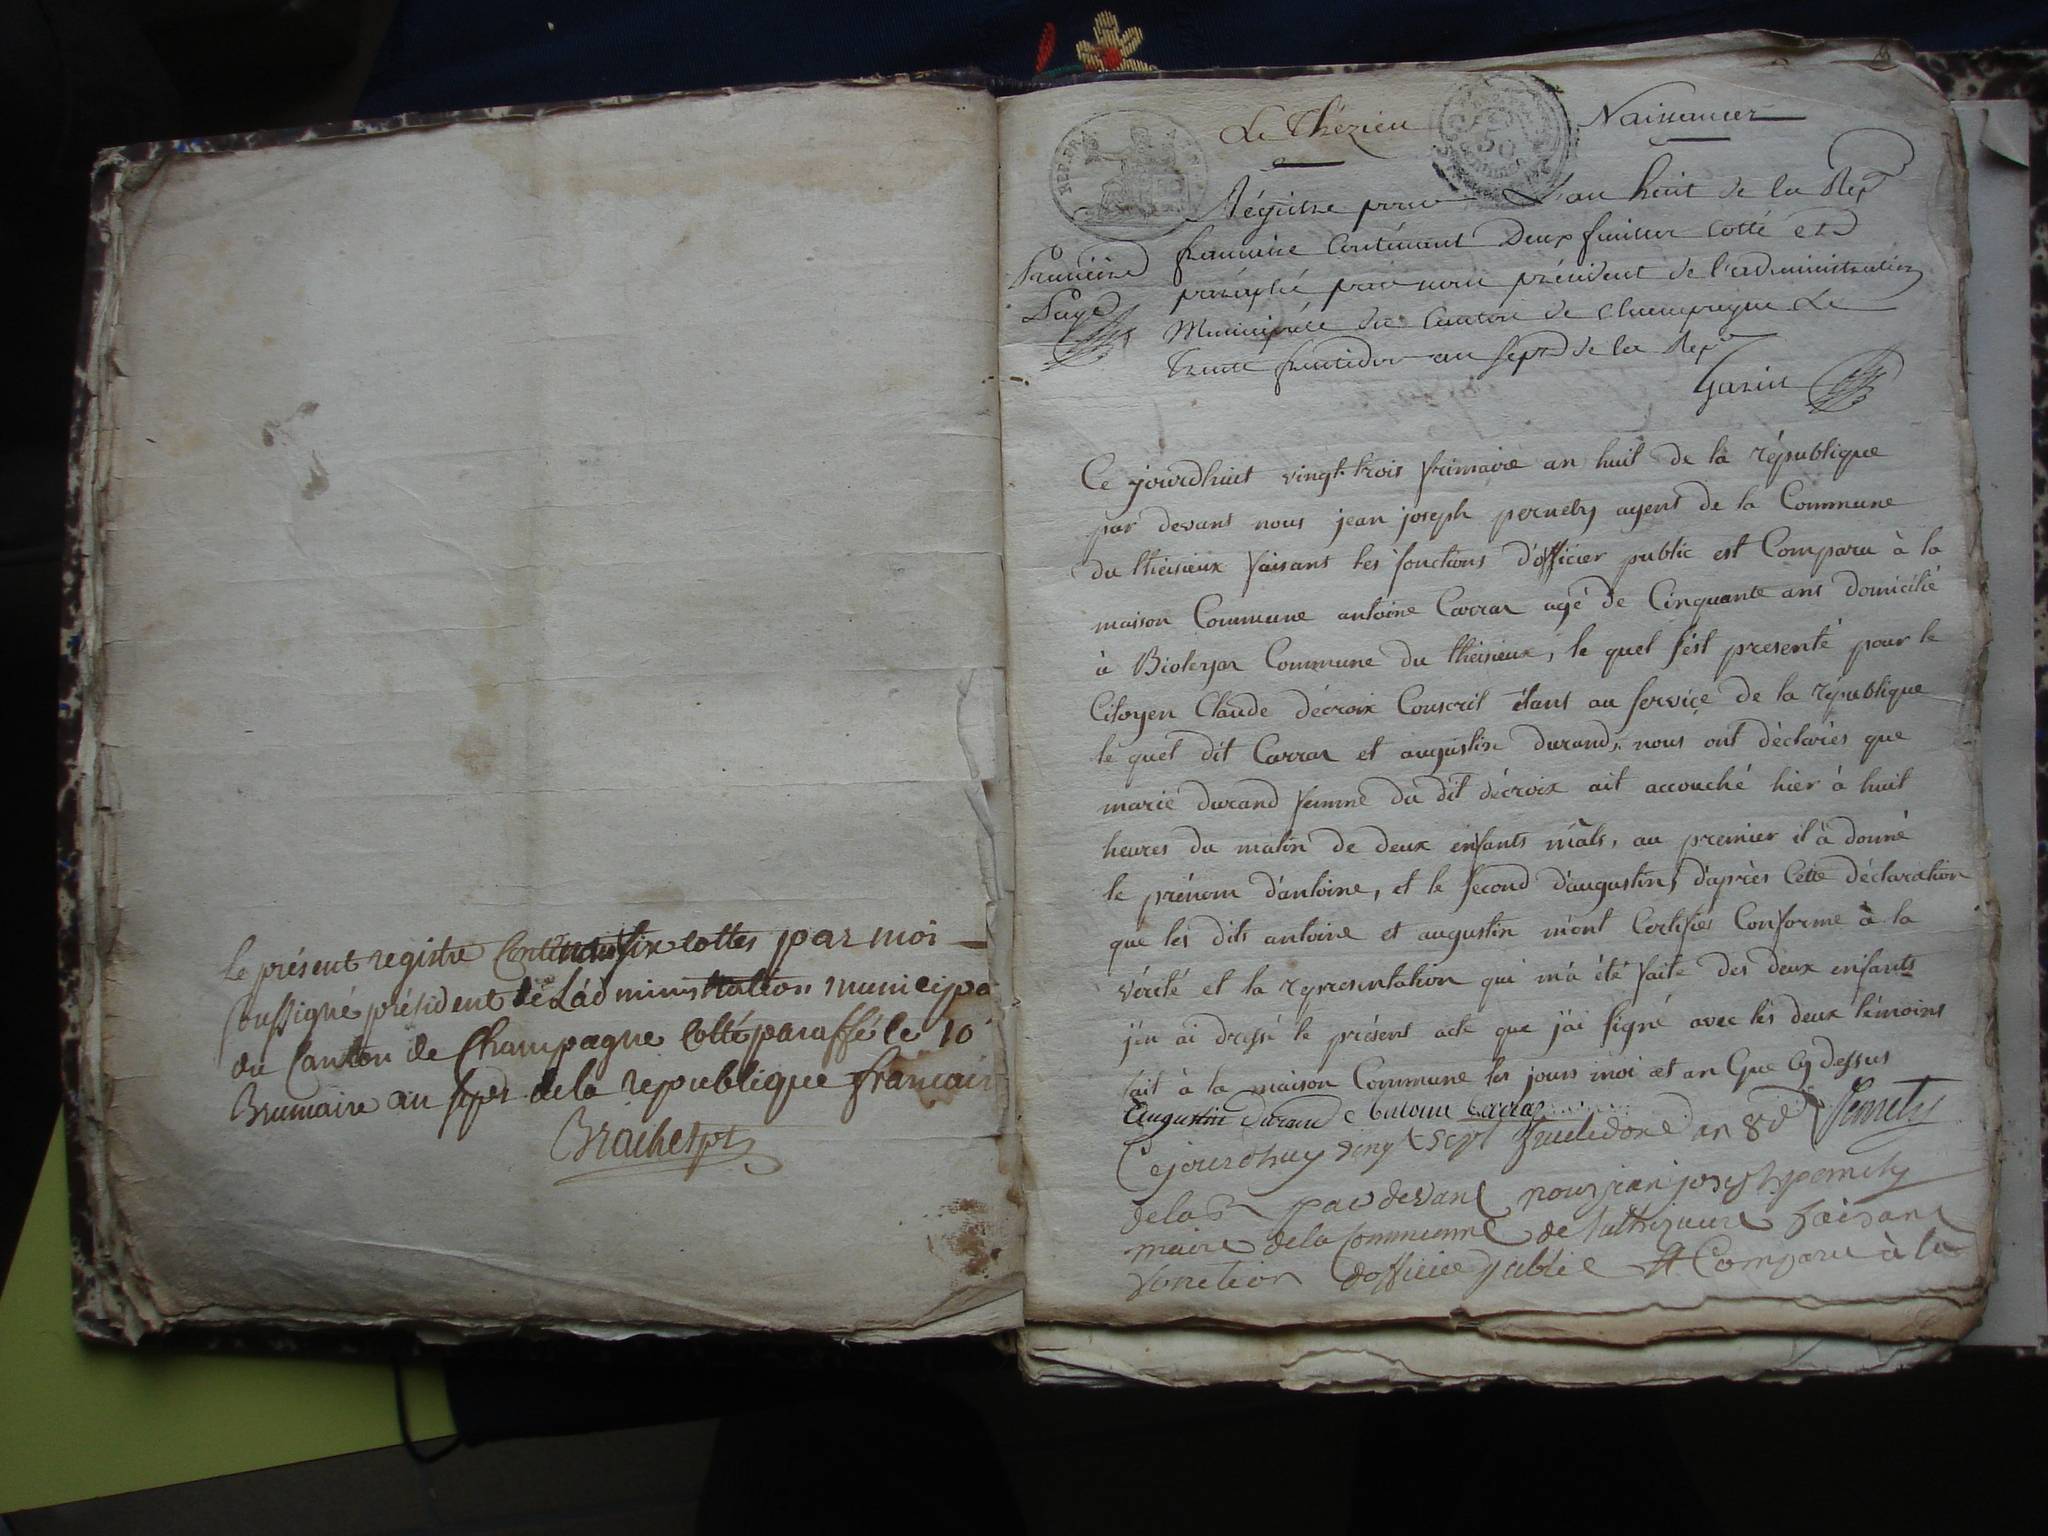 Le présent registre Contenant six cottes par moi
soussigné président de L'administration municipa
du Canton de Champagne Cotté paraffé le 10
Brumaire an sept de la republique francais
Le Thézieu
Naissances
REP. FRA
50
Régistre pour L'an huit de la Rep
francaise Contenant Deux feuilles cotté et
paraphé par nous président de l'administration
Municipale du Canton de Champagne Le
Trente fructidor an sept de la Rep
Garin
Premiere
Page
Ce jourdhuit vingt-trois frimaire an huit de la république
par devant nous jean joseph pernety agent de la Commune
du theisieux faisant les fonctions d'officier public est Comparu à la
maison Commune antoine Carrar agé de Cinquante ans domicilié
à Bioleyar Commune du theisieux, le quel s'est presenté pour le
Citoyen Claude décroix Conscrit étant au service de la république
le quel dit Carrar et augustin durand, nous ont déclarés que
marie durand femme du dit décroix ait accouché hier à huit
heures du matin de deux enfants mâls, au premier il à donné
le prénom d'antoine, et le second d'augustin, d'après Cette déclaration
que les dits antoine et augustin m'ont Certifiés Conforme à la
vérité et la representation qui m'a été faite des deux enfants
j'en ai dressé le présent acte que j'ai signé avec les deux témoins
fait à la maison Commune les jours moi et an Que Cy dessus
Augustin durand antoine Carrar pernety
Cejourdhuy vingt sept fructidore an 8
de la R par devant nous jean joseph pernety
maire de la Commune de faisant
fonction dofficier public est Comparu à la